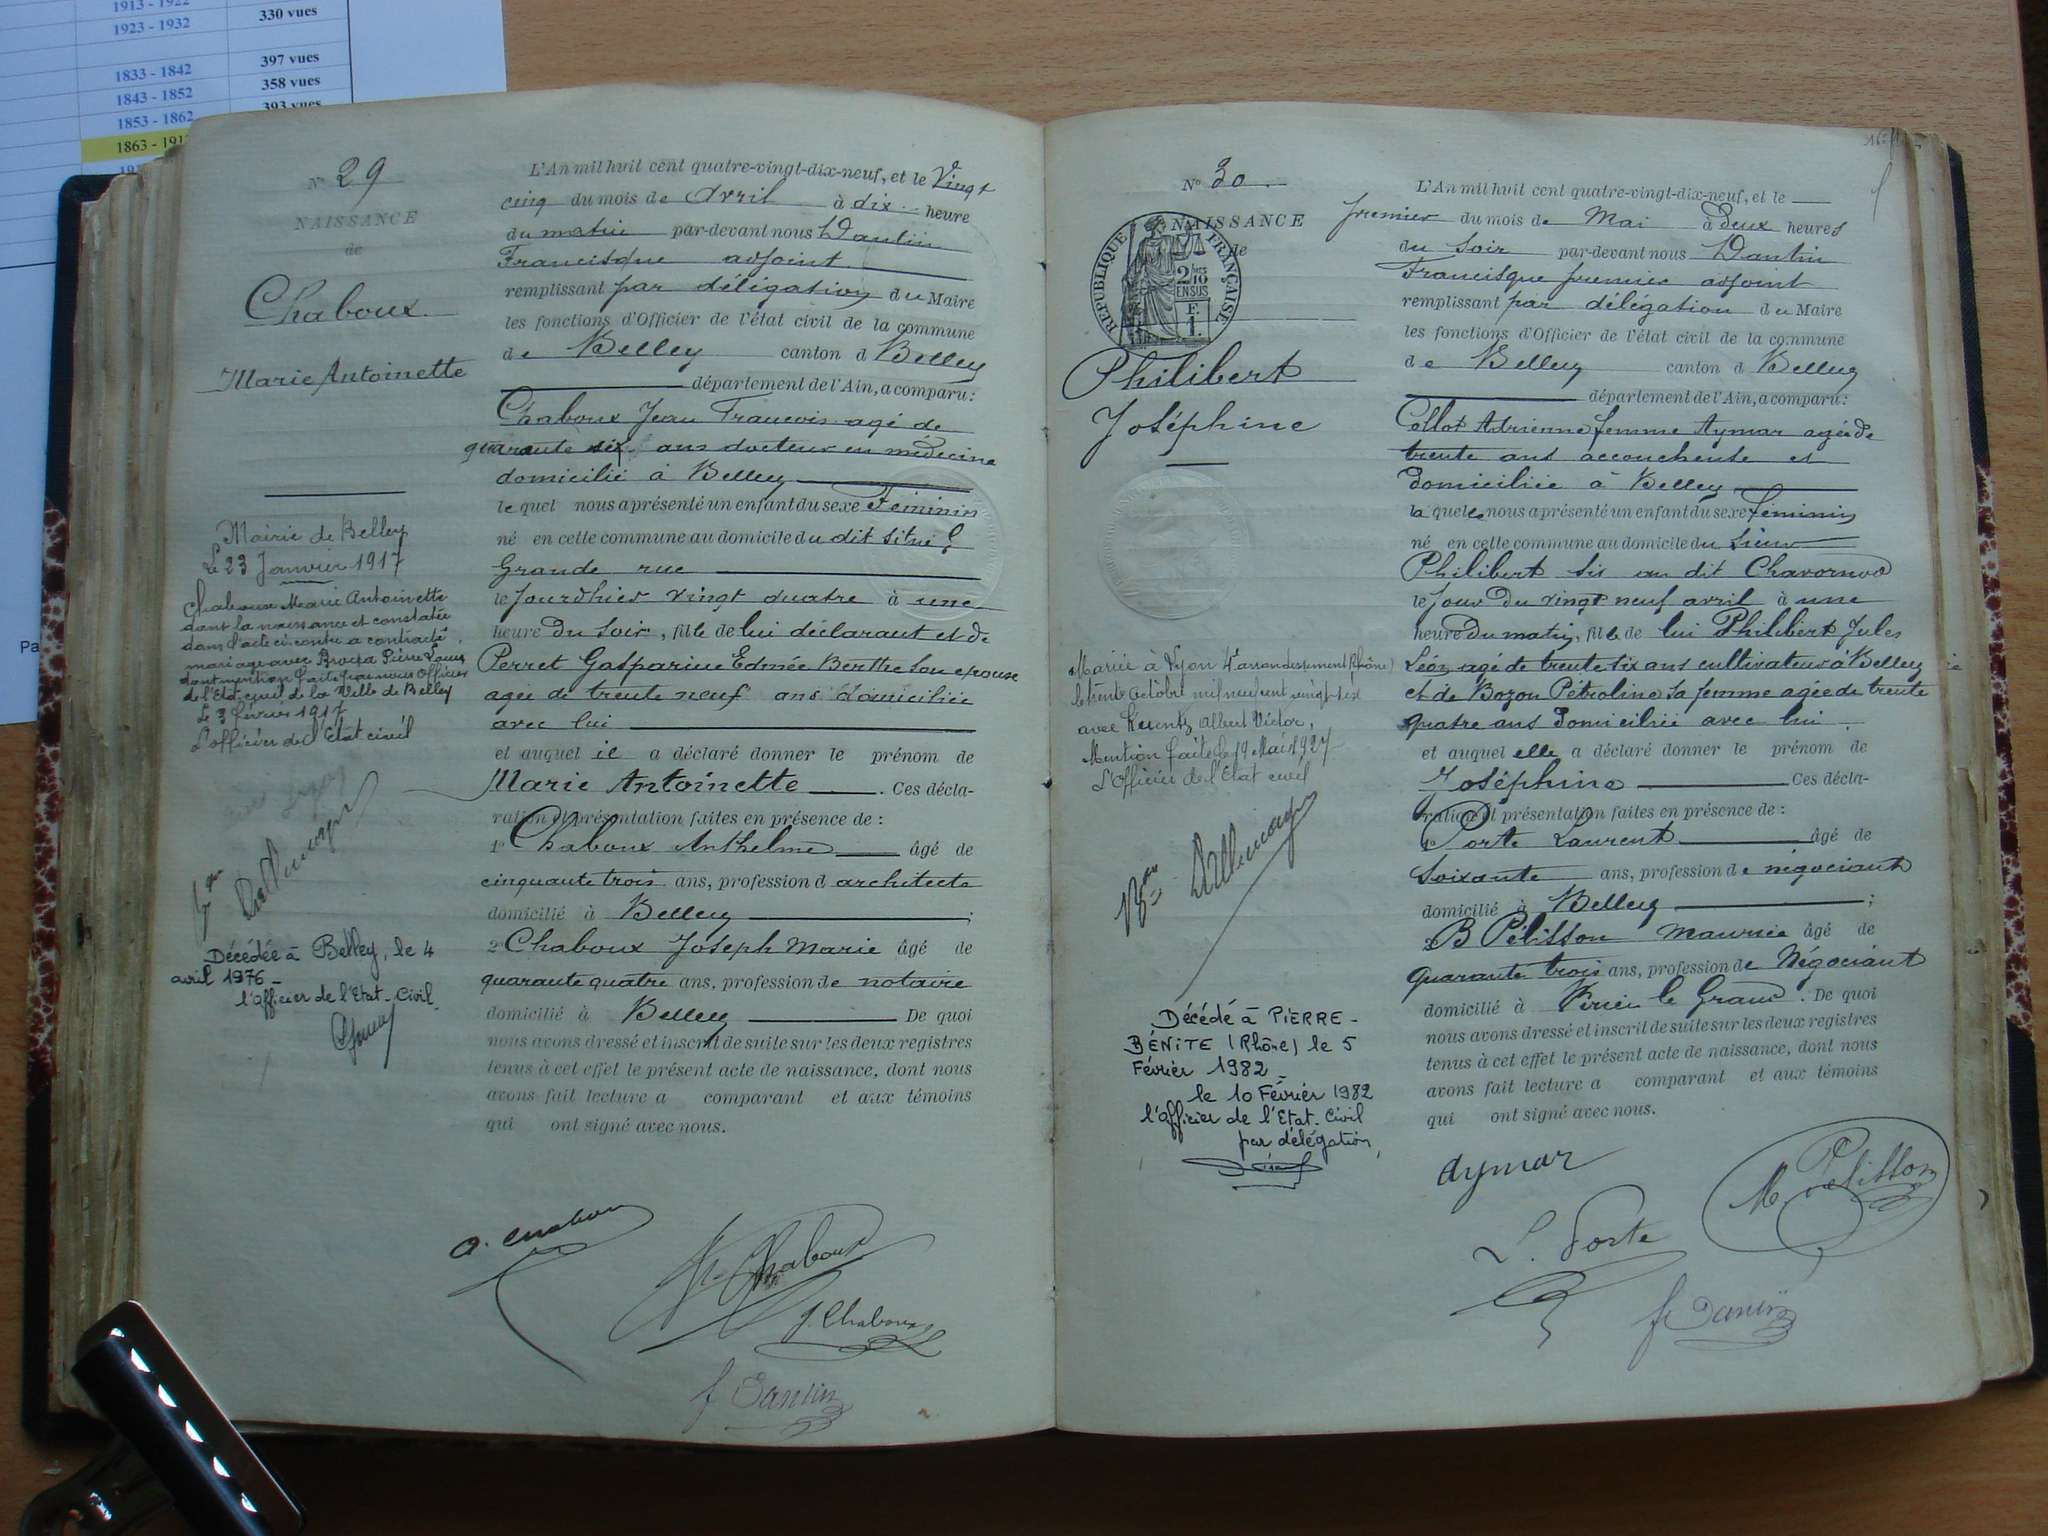 1913 - 1922
1923 - 1932 330 vues
1833 - 1842 397 vues
1843 - 1852 358 vues
1853 - 1862 393 vues
1863 - 191
Pa
N° 29
NAISSANCE
de
Chaboux
Marie Antoinette
Mairie de Belley
Le 23 Janvier 1917
Chaboux Marie Antoinette
dont la naissance et constatée
dans l'acte ci-contre a contracté
mariage avec Pierre Louis
dont mention faite par nous Officier
de l'Etat civil de la Ville de Belley
Le 3 février 1917
L'officier de l'Etat civil
Décédée à Belley, le 4
avril 1976 -
l'officier de l'Etat-Civil
L'An mil huit cent quatre-vingt-dix-neuf, et le Vingt
cinq du mois de Avril à dix heure
du matin par-devant nous Dantin
Francisque adjoint
remplissant par délégation du Maire
les fonctions d'Officier de l'état civil de la commune
de Belley canton d Belley
département de l'Ain, a comparu:
Chaboux Jean Francois agé de
quarante six ans docteur en médecine
domicilié à Belley
le quel nous a présenté un enfant du sexe Féminin
né en cette commune au domicile du dit situé
Grande rue
le Jourdhier vingt quatre à une
heure du soir, fille de lui déclarant et de
Perret Gasparine Edmée Berthe son epouse
agée de trente neuf ans domiciliée
avec lui
et auquel il a déclaré donner le prénom de
Marie Antoinette. Ces décla-
ration et présentation faites en présence de :
1° Chaboux Anthelme âgé de
cinquante trois ans, profession d architecte
domicilié à Belley ;
2° Chaboux Joseph Marie âgé de
quarante quatre ans, profession de notaire
domicilié à Belley De quoi
nous avons dressé et inscrit de suite sur les deux registres
tenus à cet effet le présent acte de naissance, dont nous
avons fait lecture a comparant et aux témoins
qui ont signé avec nous.
Chaboux
J. Chaboux
f Dantin
N° 30
NAISSANCE
de
REPUBLIQUE FRANÇAISE
2/10
EN SUS
F.
1.
Philibert
Joséphine
Mariée à Lyon 4e arrondissement (Rhône)
le trente octobre mil neuf cent vingt six
avec Albert Victor,
Mention faite le 19 Mai 1927
L'Officier de l'Etat civil
Décédé à PIERRE-
BÉNITE (Rhône) le 5
Février 1982 -
le 10 Février 1982
l'officier de l'Etat-Civil
par délégation,
L'An mil huit cent quatre-vingt-dix-neuf, et le
premier du mois de Mai à deux heures
du soir par-devant nous Dantin
Francisque premier adjoint
remplissant par délégation du Maire
les fonctions d'Officier de l'état civil de la commune
de Belley canton d Belley
département de l'Ain, a comparu:
Collot Adrienne femme Aymar agée de
trente ans accoucheuse et
domiciliée à Belley
la quelle nous a présenté un enfant du sexe féminin
né en cette commune au domicile du sieur
Philibert sis au dit Chavornod
le jour du vingt neuf avril à une
heure du matin, fille de lui Philibert Jules
Léon agé de trente six ans cultivateur à Belley
et de Bozon Pétroline sa femme agée de trente
quatre ans domiciliée avec lui
et auquel elle a déclaré donner le prénom de
Joséphine Ces décla-
ration et présentation faites en présence de :
Porte Laurent âgé de
soixante ans, profession de négociant
domicilié à Belley ;
Pélisson Maurice âgé de
quarante trois ans, profession de Négociant
domicilié à Virieu le Grand. De quoi
nous avons dressé et inscrit de suite sur les deux registres
tenus à cet effet le présent acte de naissance, dont nous
avons fait lecture a comparant et aux témoins
qui ont signé avec nous.
aymar
M Pelisson
L. Porte
f Dantin